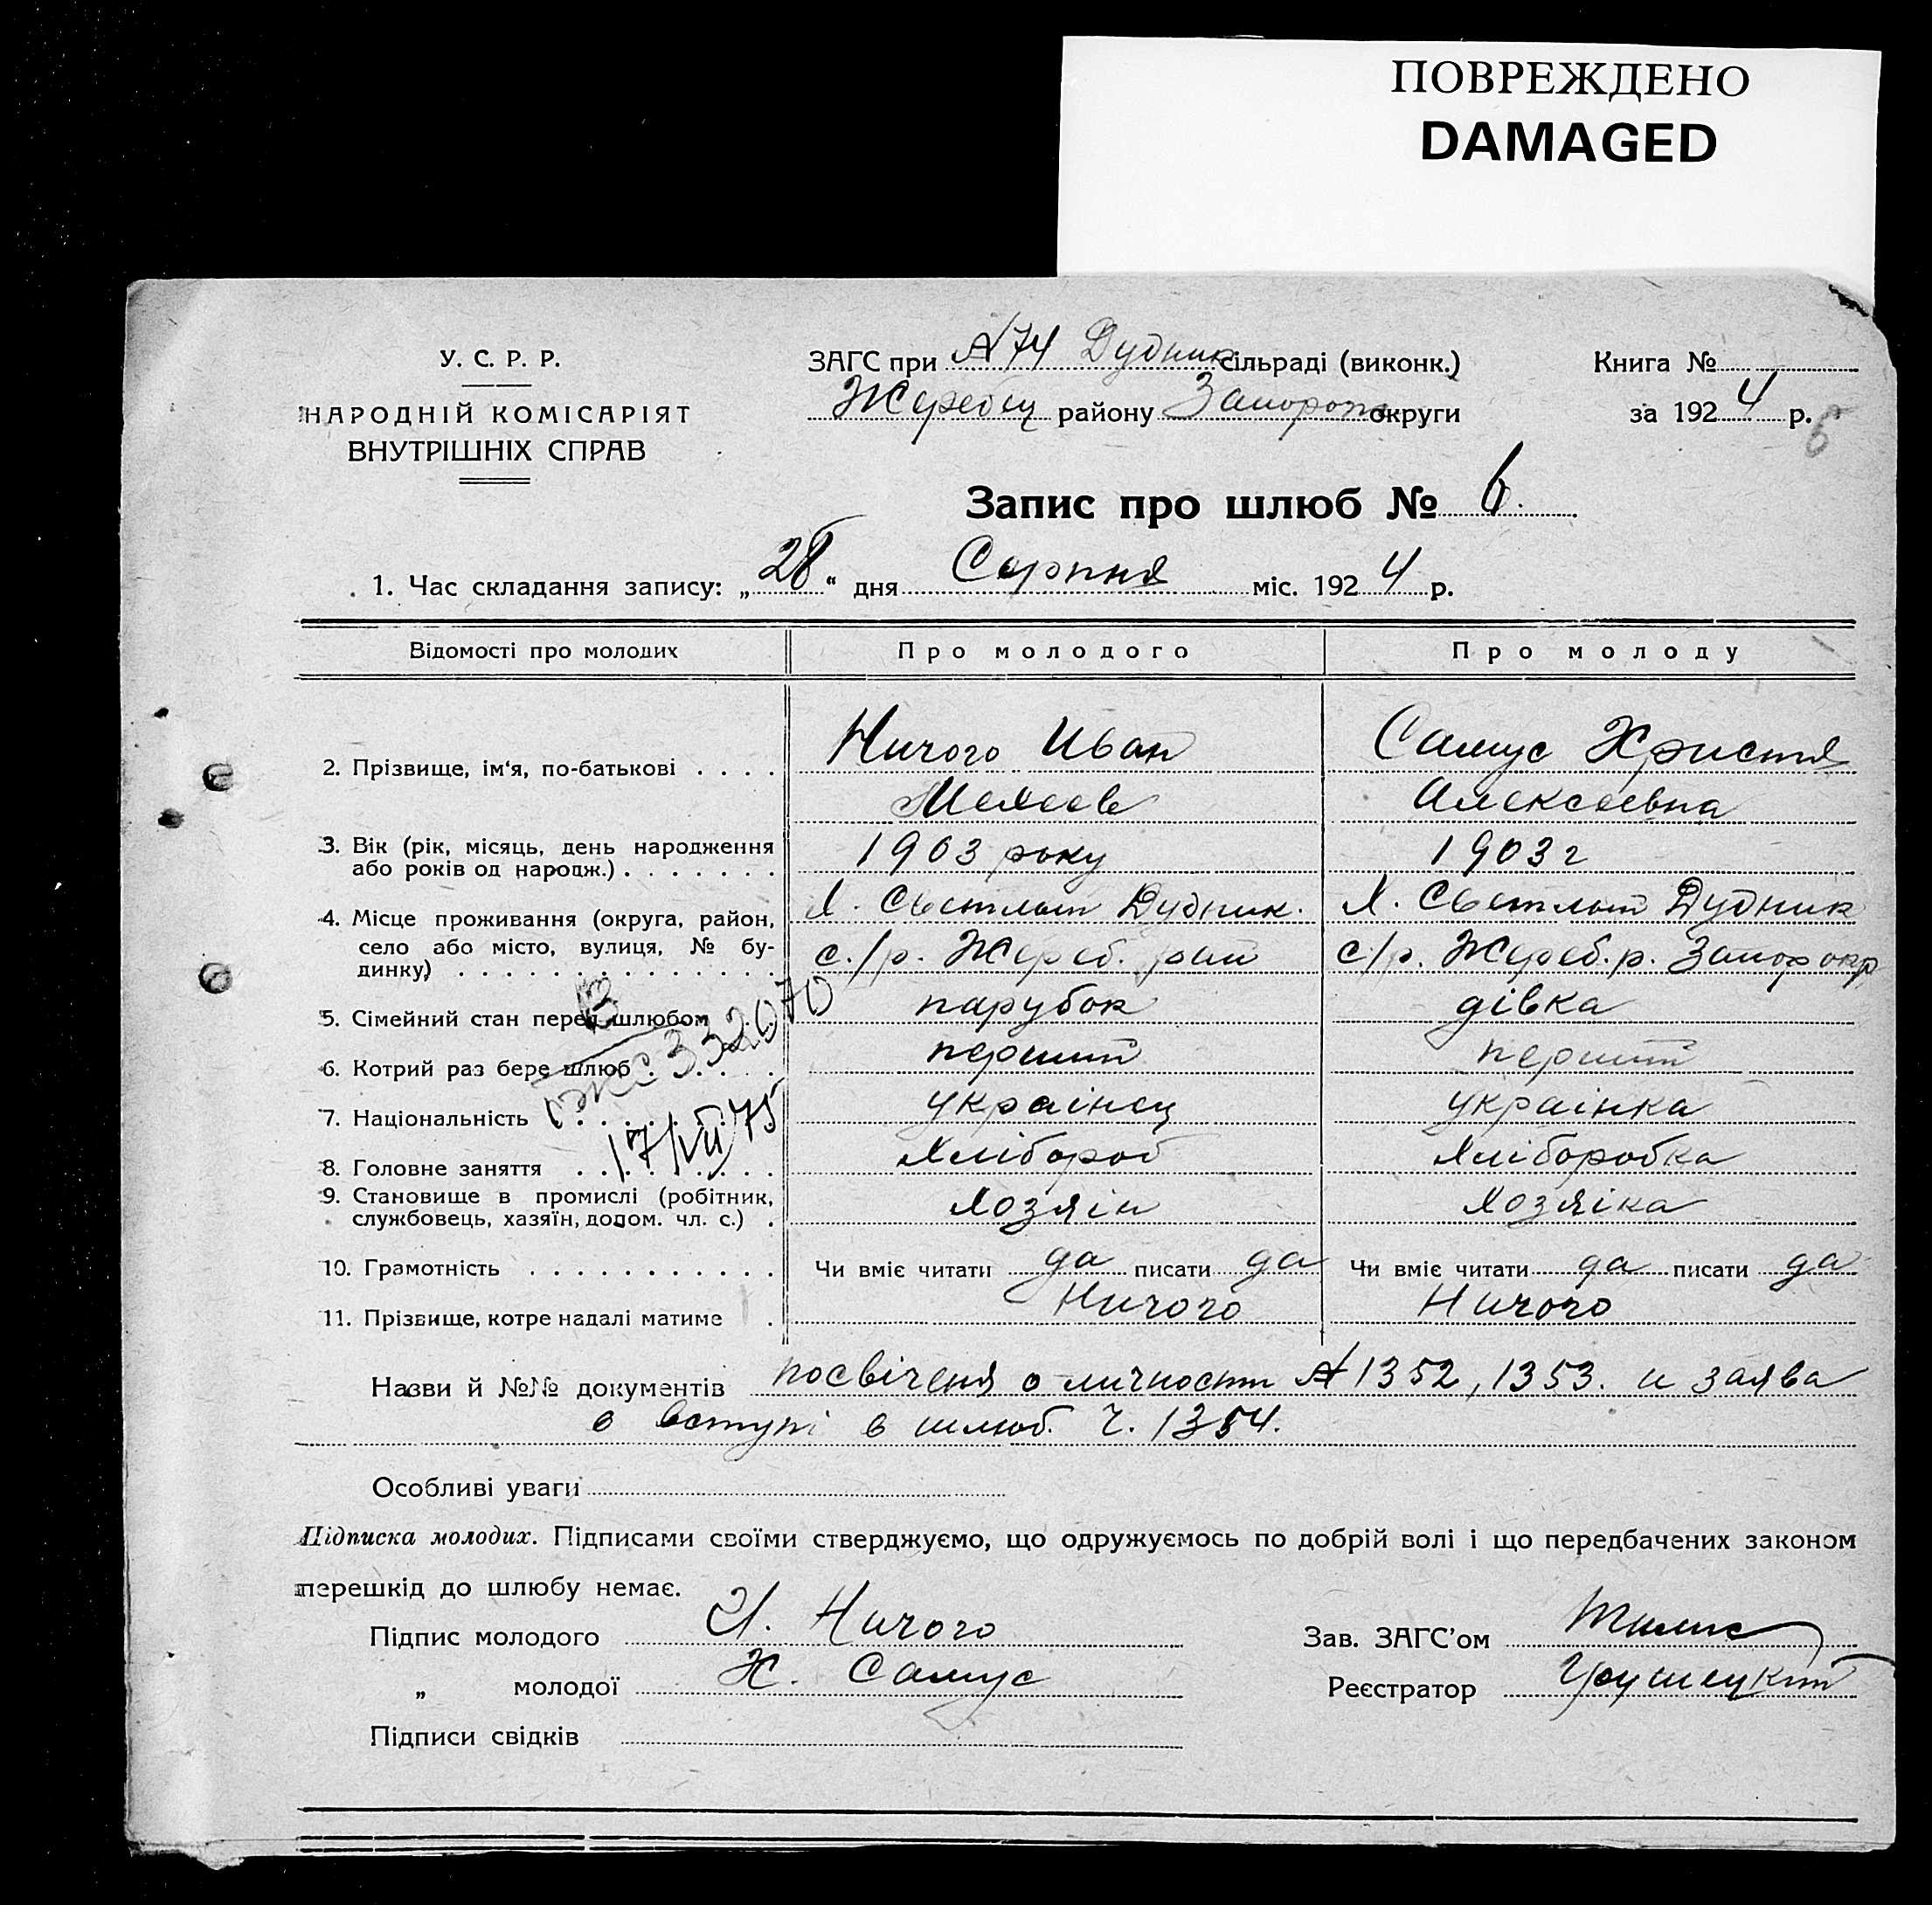 ПОВРЕЖДЕНО
DAMAGED
У. С. Р. Р.
НАРОДНІЙ КОМІСАРІЯТ
ВНУТРІШНІХ СПРАВ
ЗАГС при №74 Дудник сільраді (виконк.)
Жеребец району Запорож округи
Книга №
за 1924 р.
6
Запис про шлюб № 6.
1. Час складання запису: „28“ дня Серпня міс. 1924 р.
Відомості про молодих Про молодого Про молоду
2. Прізвище, ім'я, по-батькові . . . . Ничого Иван Самус Христя
Алексеевна
3. Вік (рік, місяць, день народження
або років од народж.) . . . . . . . 1903 року 1903 г
4. Місце проживання (округа, район, Х. Светлый Дудник. Х. Светлый Дудник
село або місто, вулиця, № бу-
динку) . . . . . . . . . . . . . . с./р. Жереб. рай с/р. Жереб. р. Запор окр
5. Сімейний стан перед шлюбом парубок дівка
6. Котрий раз бере шлюб . . . . перший перший
332070
7. Національність . . . . . . . . украінец украінка
17/VII 75
8. Головне заняття . . . . . . . . Хлібороб Хліборобка
9. Становище в промислі (робітник,
службовець, хазяїн, допом. чл. с.) . Хозяін Хозяіка
10. Грамотність . . . . . . . . . . . Чи вміє читати да писати да Чи вміє читати да писати да
11. Прізвище, котре надалі матиме . Ничого Ничого
Назви й №№ документів посвіченя о личности № 1352, 1353. и заява
о вступі в шлюб. ч. 1354.
Особливі уваги
Підписка молодих. Підписами своїми стверджуємо, що одружуємось по добрій волі і що передбачених законом
перешкід до шлюбу немає.
Підпис молодого И. Ничого Зав. ЗАГС'ом
„ молодої Х. Самус Реєстратор
Підписи свідків